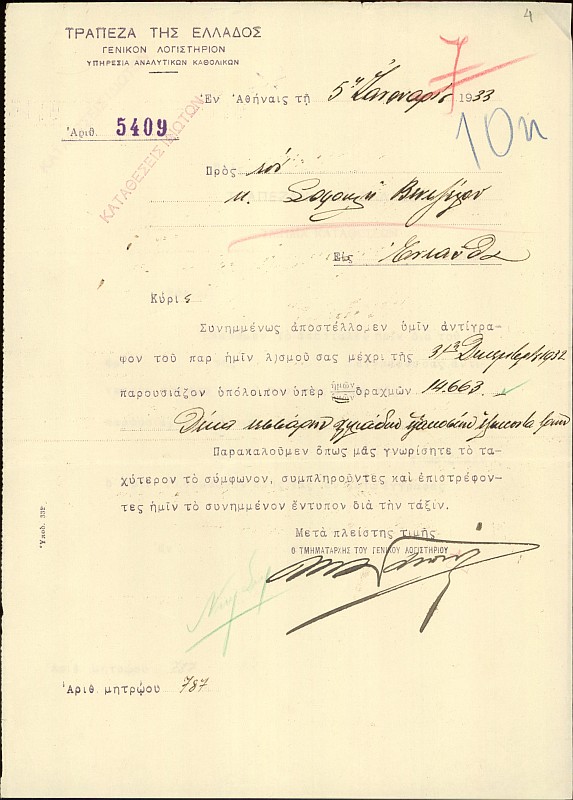 4
ΤΡΑΠΕΖΑ ΤΗΣ ΕΛΛΑΔΟΣ
ΓΕΝΙΚΟΝ ΛΟΓΙΣΤΗΡΙΟΝ
ΥΠΗΡΕΣΙΑ ΑΝΑΛΥΤΙΚΩΝ ΚΑΘΟΛΙΚΩΝ
7
Ἐν Ἀθήναις τῇ 5ῃ Ἰανουαρίου 1933
10η
Ἀριθ. 5409
ΚΑΤΑΘΕΣΕΙΣ ΙΔΙΩΤΩΝ
Πρὸς τὸν
κ. Σοφοκλῆ Βενιζέλον
Εἰς Ἐνταῦθα
Κύριε
Συνημμένως ἀποστέλλομεν ὑμῖν ἀντίγρα-
φον τοῦ παρ ἡμῖν λ)σμοῦ σας μέχρι τῆς 31ης Δεκεμβρίου 1932
παρουσιάζον ὑπόλοιπον ὑπὲρ ἡμῶν ὑμῶν δραχμῶν 14.663
Δέκα τεσσάρων χιλιάδων ἑξακοσίων ἑξήκοντα τριῶν
Παρακαλοῦμεν ὅπως μᾶς γνωρίσητε τὸ τα-
χύτερον τὸ σύμφωνον, συμπληροῦντες καὶ ἐπιστρέφον-
τες ἡμῖν τὸ συνημμένον ἔντυπον διὰ τὴν τάξιν.
Μετὰ πλείστης τιμῆς
Ο ΤΜΗΜΑΤΑΡΧΗΣ ΤΟΥ ΓΕΝΙΚΟΥ ΛΟΓΙΣΤΗΡΙΟΥ
Ὑποδ. 332
Ἀριθ. μητρῴου 787